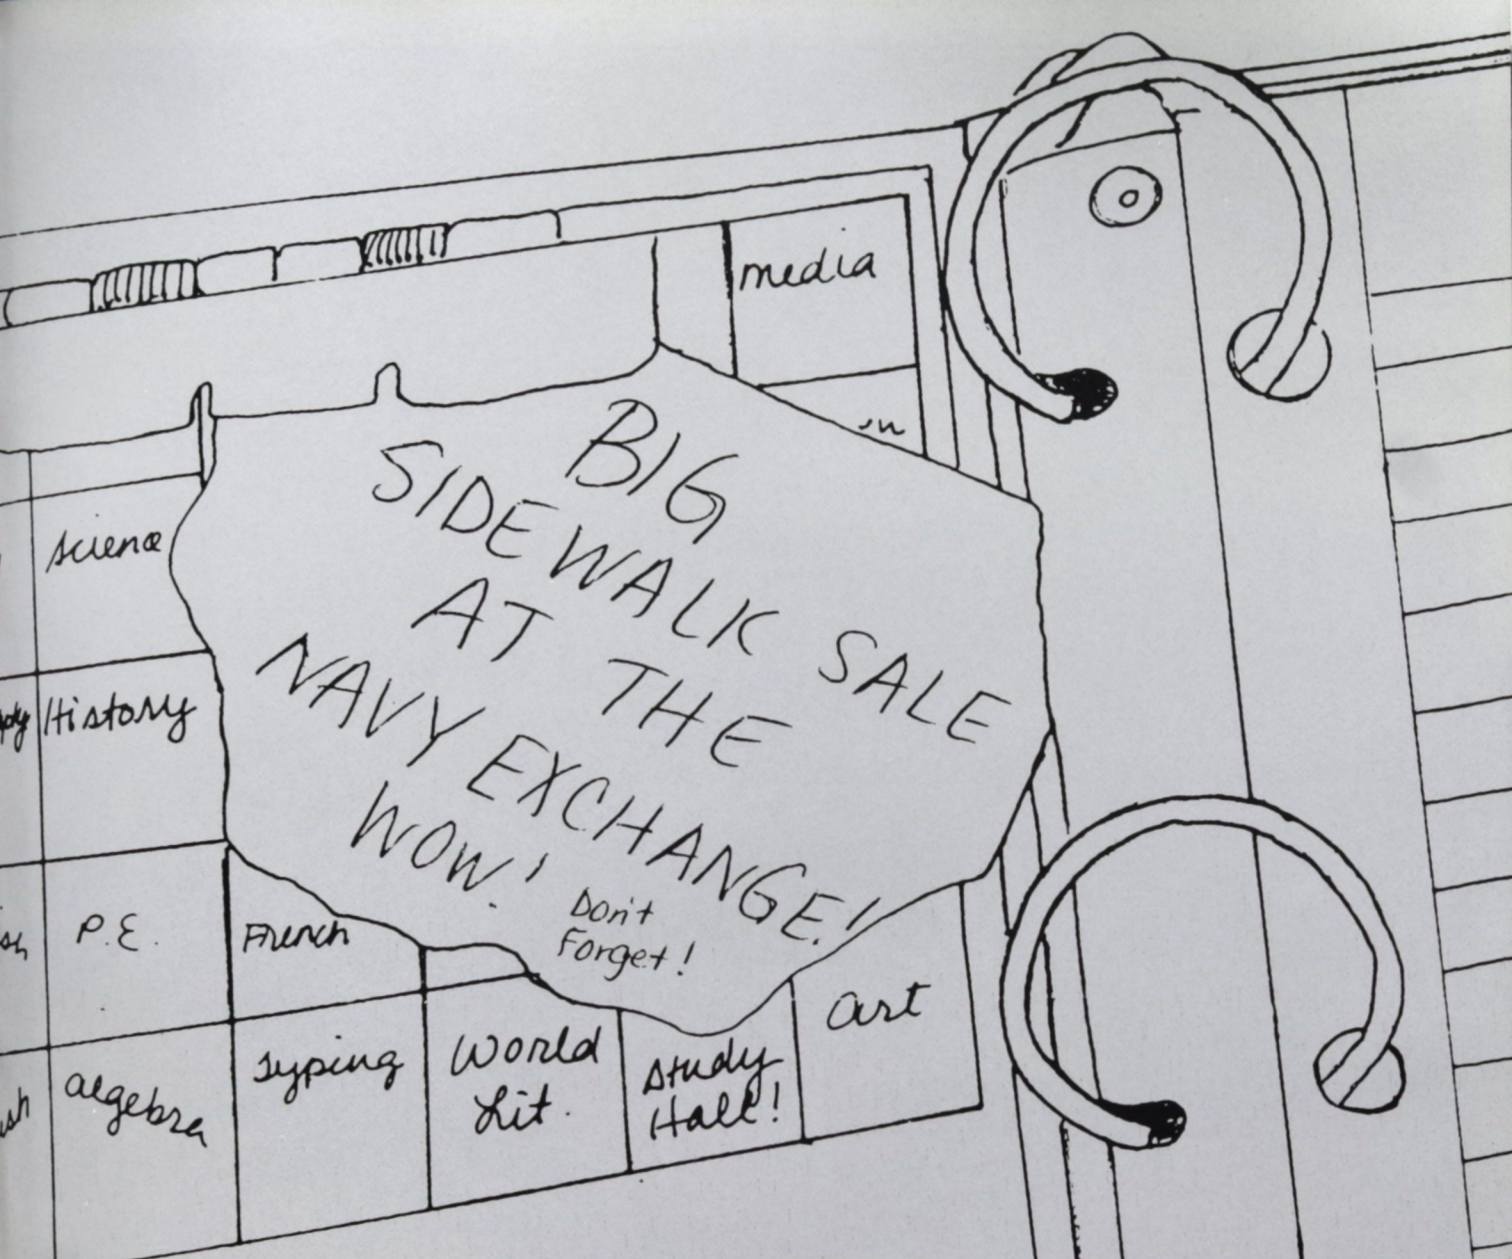 media
science
History
P.E.
French
algebra
Typing
World
Lit.
Study
Hall!
art
BIG
SIDEWALK SALE
AT THE
NAVY EXCHANGE!
WOW!
Don't
Forget!